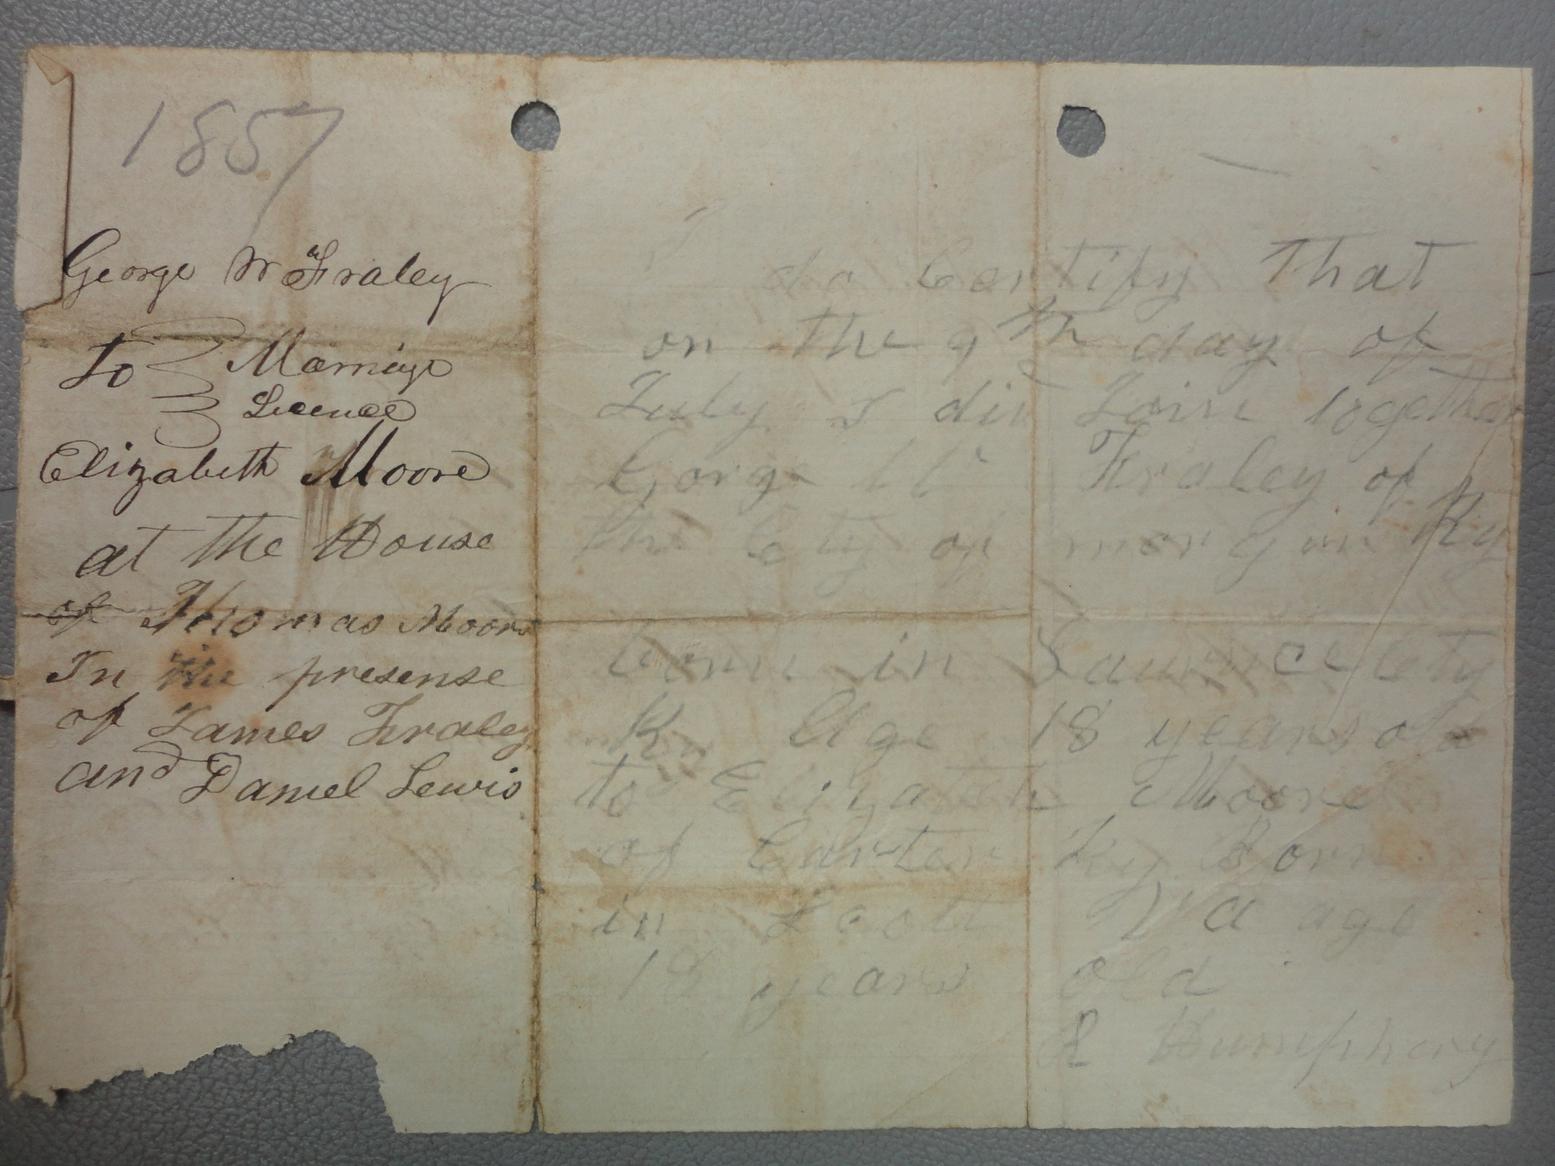 1857
George W Fraley
To Marriage
Licence
Elizabeth Moore
at the House
of Thomas Moore
In the presense
of James Fraley
and Daniel Lewis
I do Certify That
on the 9th day of
July I did Join together
Gorge W Fraley of
the Cty of morgan Ky
born in Lawrnce Cty
Ky Age 18 years old
to Elizabeth Moore
of Carter Ky Born
in Scott Va age
18 years old
R Humphrey